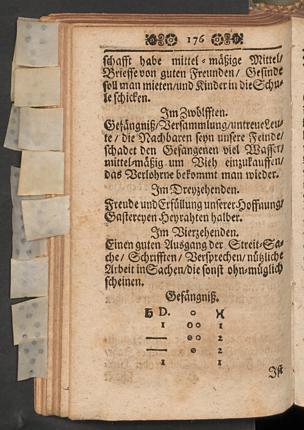 176
schafft habe mittel-mäßige Mittel/
Brieffe von guten Freunden/ Gesinde
soll man mieten/und Kinder in die Schu-
le schicken.
Im Zwölfften.
Gefängniß/Versammlung/untreue Leu-
te/ die Nachbaren seyn unsere Feinde/
schadet den Gefangenen viel Waffen/
mittel-mäßig um Vieh einzukauffen/
das Verlohrne bekommt man wieder.
Im Dreyzehenden.
Freude und Erfüllung unserer Hoffnung/
Gastereyen Heyrahten halber.
Im Vierzehenden.
Einen guten Ausgang der Streit-Sa-
che/ Schrifften/ Versprechen/ nützliche
Arbeit in Sachen/die sonst ohn-müglich
scheinen.
Gefängniß.
♄ D. o ♓
1 oo 1
— oo 2
— o 2
1 1
Ist